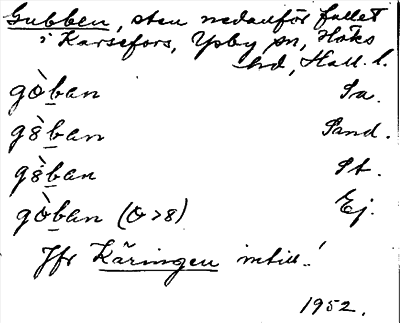 Gubben, sten nedanför fallet
i Karsefors, Ysby sn, Höks
hd, Hall. l.
gò̀ban Sa.
gò̀ban Sand.
gò̀ban St.
gòban (o>8) Ej.
Jfr Käringen intill!
1952.